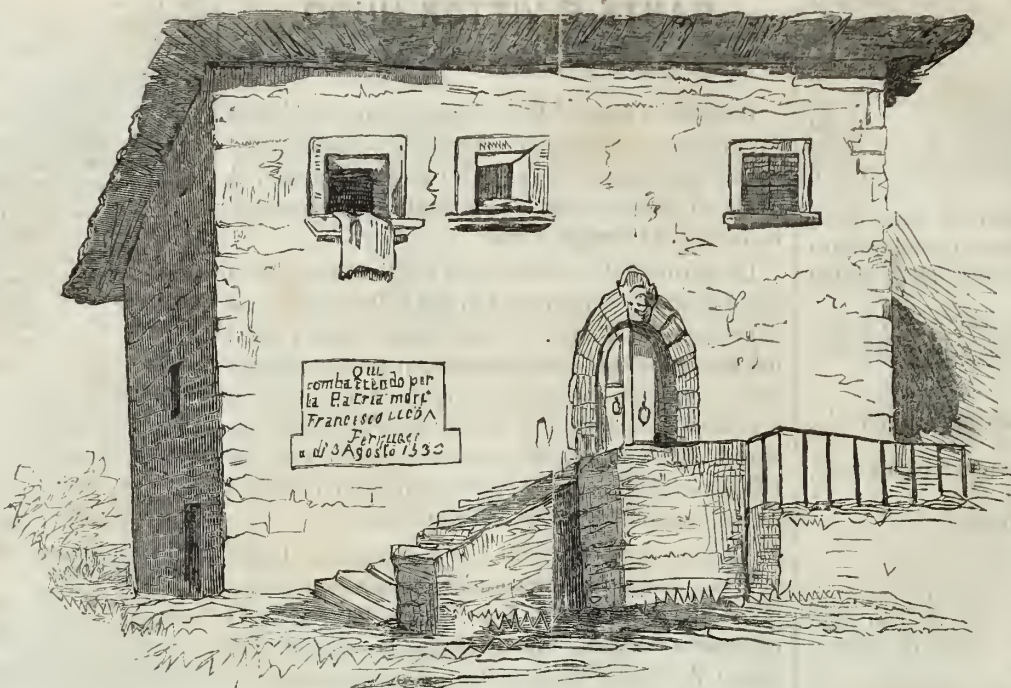 QUI
combattendo per
la Patria morì
Francisco
Ferrucci
a dì 3 Agosto 1530